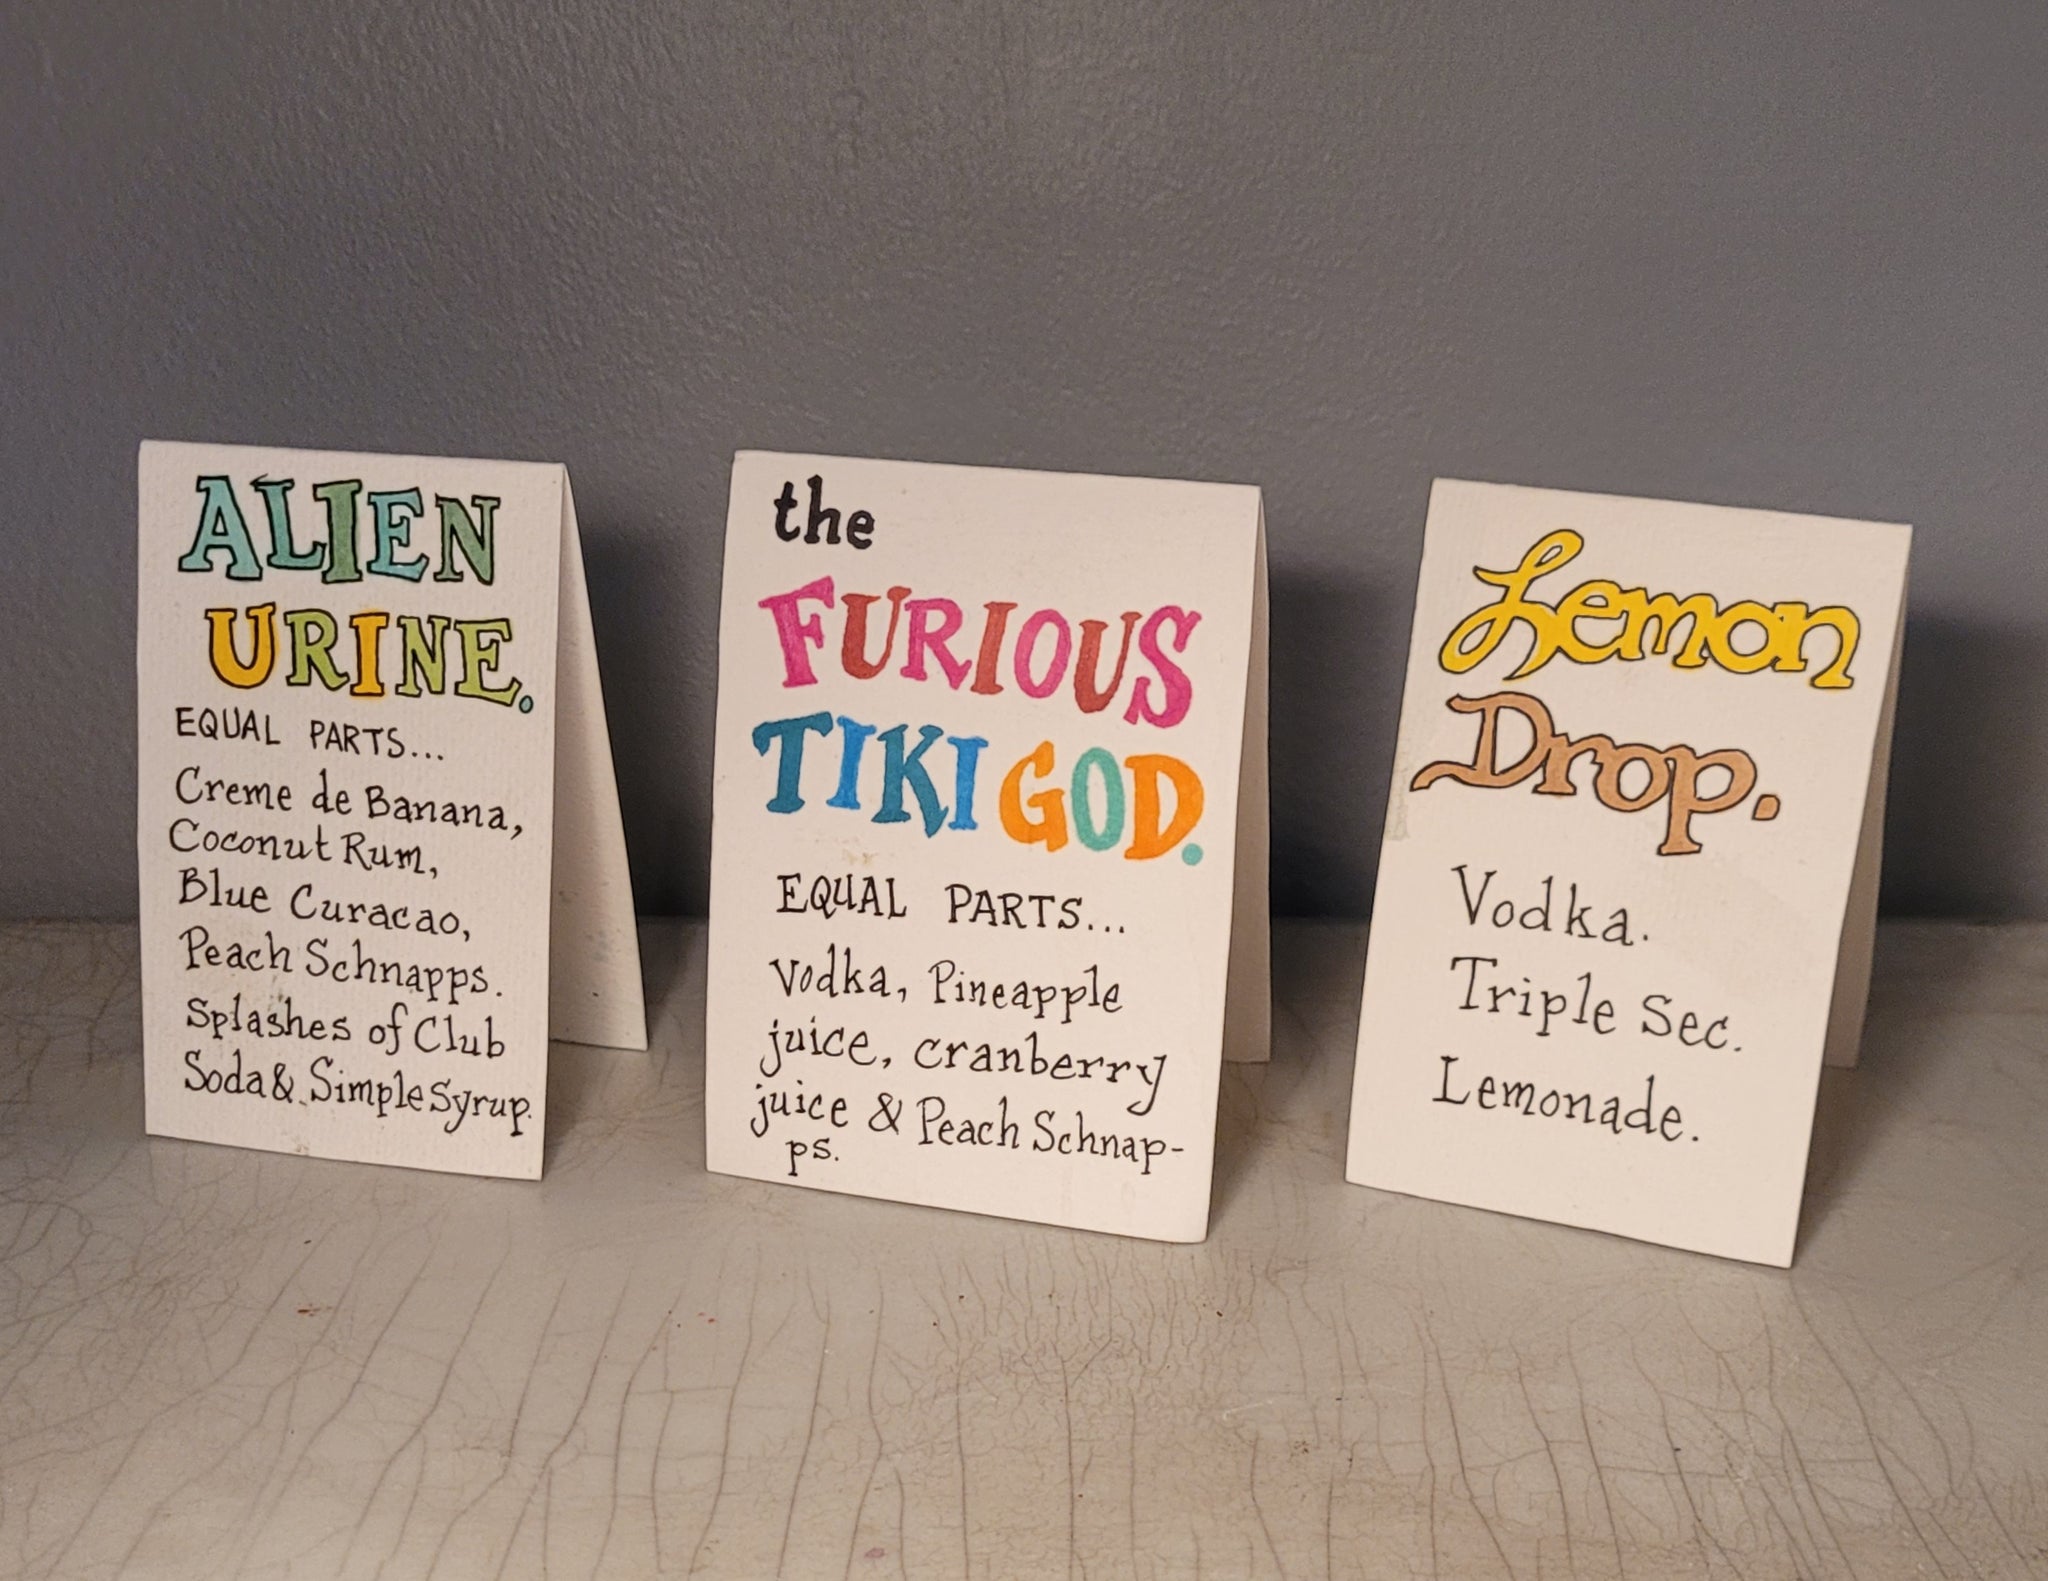 ALIEN
URINE.
EQUAL PARTS...
Creme de Banana,
Coconut Rum,
Blue Curacao,
Peach Schnapps.
Splashes of Club
Soda & Simple Syrup.
the
FURIOUS
TIKI GOD.
EQUAL PARTS...
Vodka, Pineapple
juice, cranberry
juice & Peach Schnap-
ps.
Lemon
Drop.
Vodka.
Triple Sec.
Lemonade.